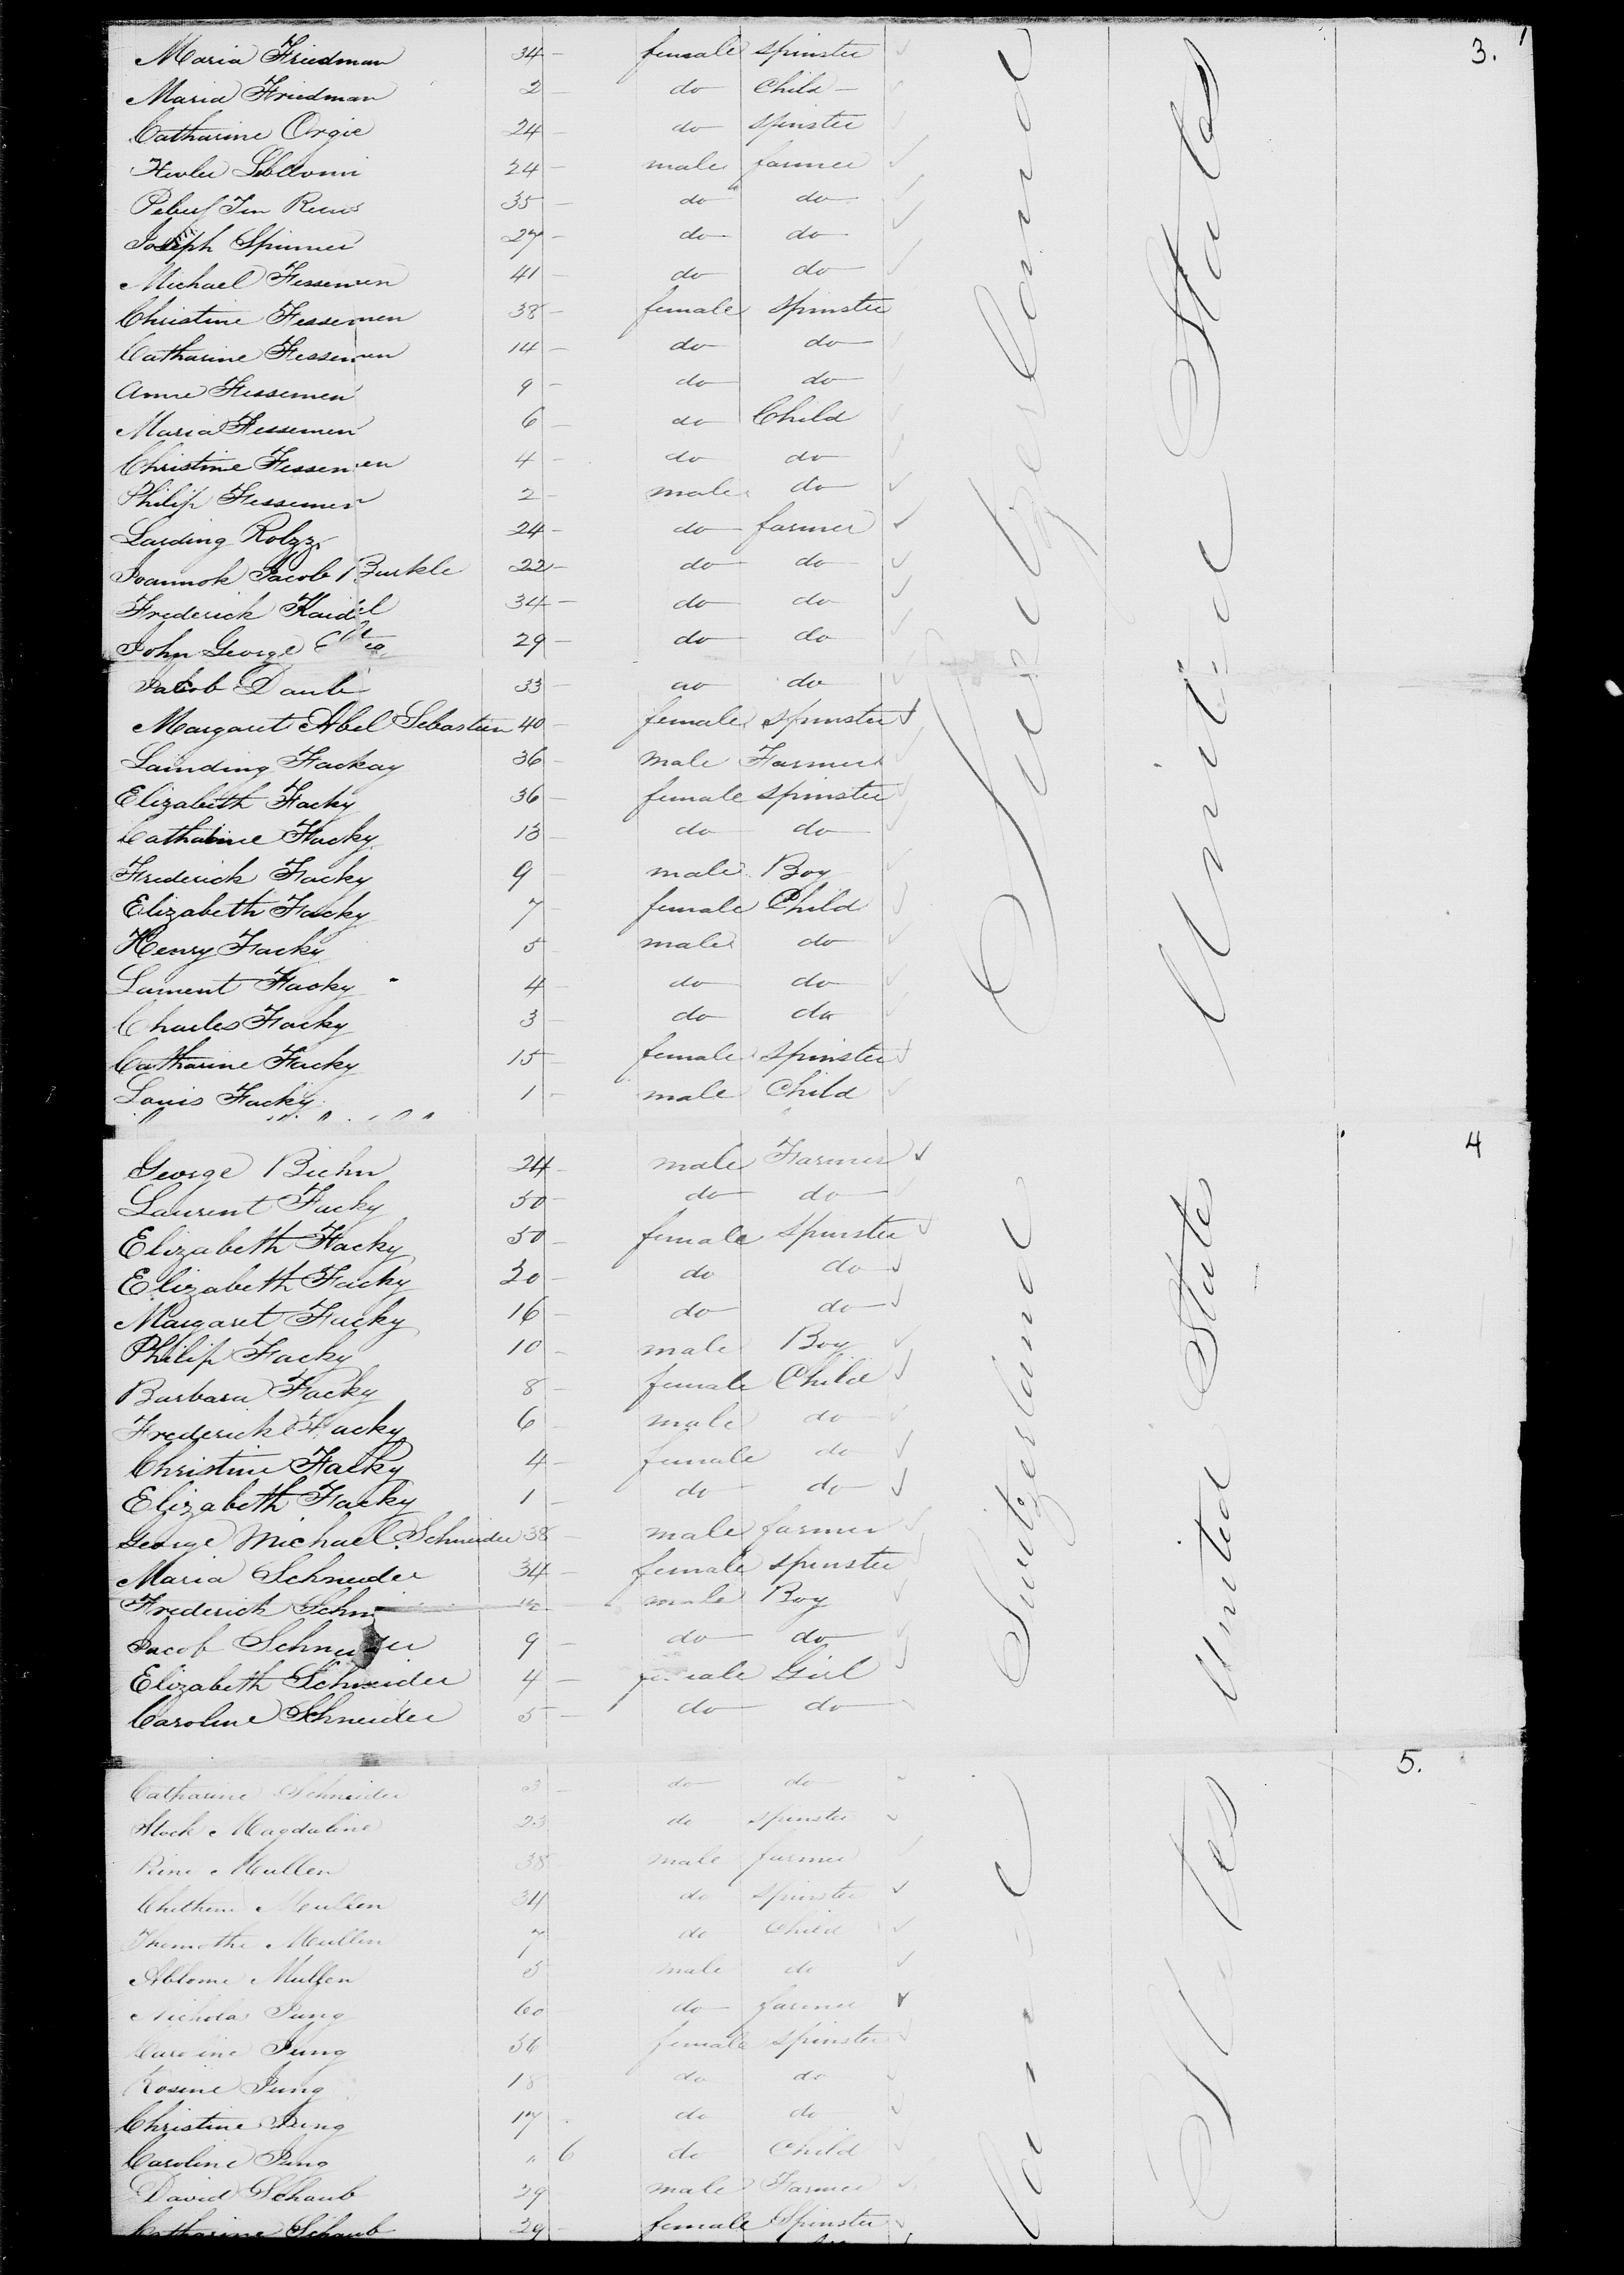 3.
Maria Friedman 34 – female spinster
Maria Friedman 2 – do Child –
Catharine Orgie 24 – do spinster
24 – male farmer
35 – do do
Joseph Spinner 27 – do do
Michael Fessemen 41 – do do
Christine Fessemen 38 – female spinster
Catharine Fessemen 14 – do do
Anne Fessemen 9 – do do
Maria Fessemen 6 – do Child
Christine Fessemen 4 – do do
Philip Fessemen 2 – male do
Larding 24 – do farmer
Jacob Burkle 22 – do do
Frederick Kaidel 34 – do do
John George 29 – do do
Jacob Daub 33 – do do
Margaret Abel Sebastien 40 – female spinster
Lainding Fackay 36 – male Farmer
Elizabeth Facky 36 – female spinster
Catharine Facky 13 – do do
Frederick Facky 9 – male Boy
Elizabeth Facky 7 – female Child
Henry Facky 5 male do
Lament Facky 4 – do do
Charles Facky 3 – do do
Catharine Facky 15 – female spinster
Louis Facky 1 – male Child
Switzerland
United States
4
George Biehn 24 – male Farmer
Laurent Facky 50 – do do
Elizabeth Facky 50 – female spinster
Elizabeth Facky 20 – do do
Margaret Facky 16 – do do
Philip Facky 10 – male Boy
Barbara Facky 8 – female Child
Frederick Facky 6 – male do
Christine Facky 4 – female do
Elizabeth Facky 1 – do do
George Michael Schneider 38 – male farmer
Maria Schneider 34 – female spinster
Frederick male Boy
Jacob Schneider 9 – do do
Elizabeth Schneider 4 – female Girl
Caroline Schneider 5 – do do
Switzerland
United States
5.
Catharine Schneider 3 – do do
Stock Magdaline 23 do spinster
Mullen 38 male farmer
Mullen 34 do spinster
Mullen 7 do Child
Mullen 5 male do
Nicholas Jung 60 do farmer
Caroline Jung 56 female spinster
Rosine Jung 18 do do
Christine Jung 17 do do
Caroline Jung " 6 do Child
David Schaub 29 male Farmer
Catharine Schaub 29 – female Spinster
States